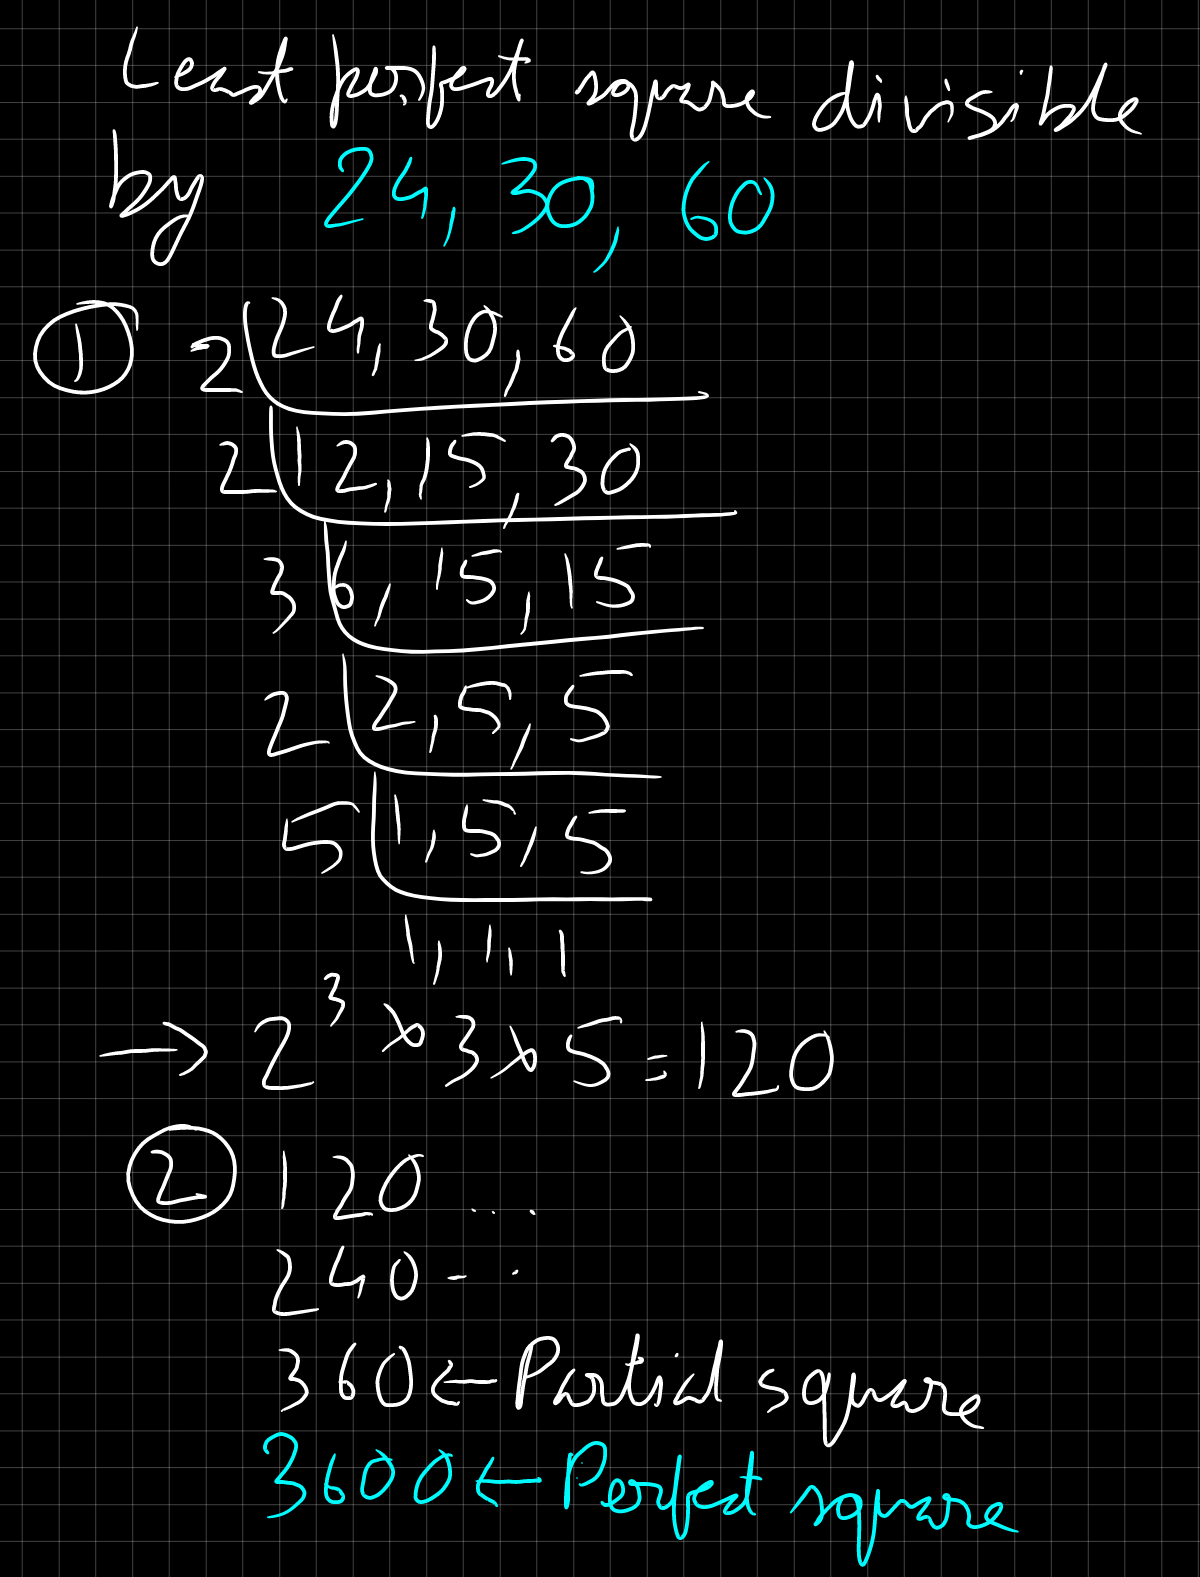 Least perfect square divisible
by 24, 30, 60
① 2 24, 30, 60
2 12, 15, 30
3 6, 15, 15
2 2, 5, 5
5 1, 5, 5
1, 1, 1
→ 2³ × 3 × 5 = 120
② 120 ...
240 - ..
360 ← Partial square
3600 ← Perfect square